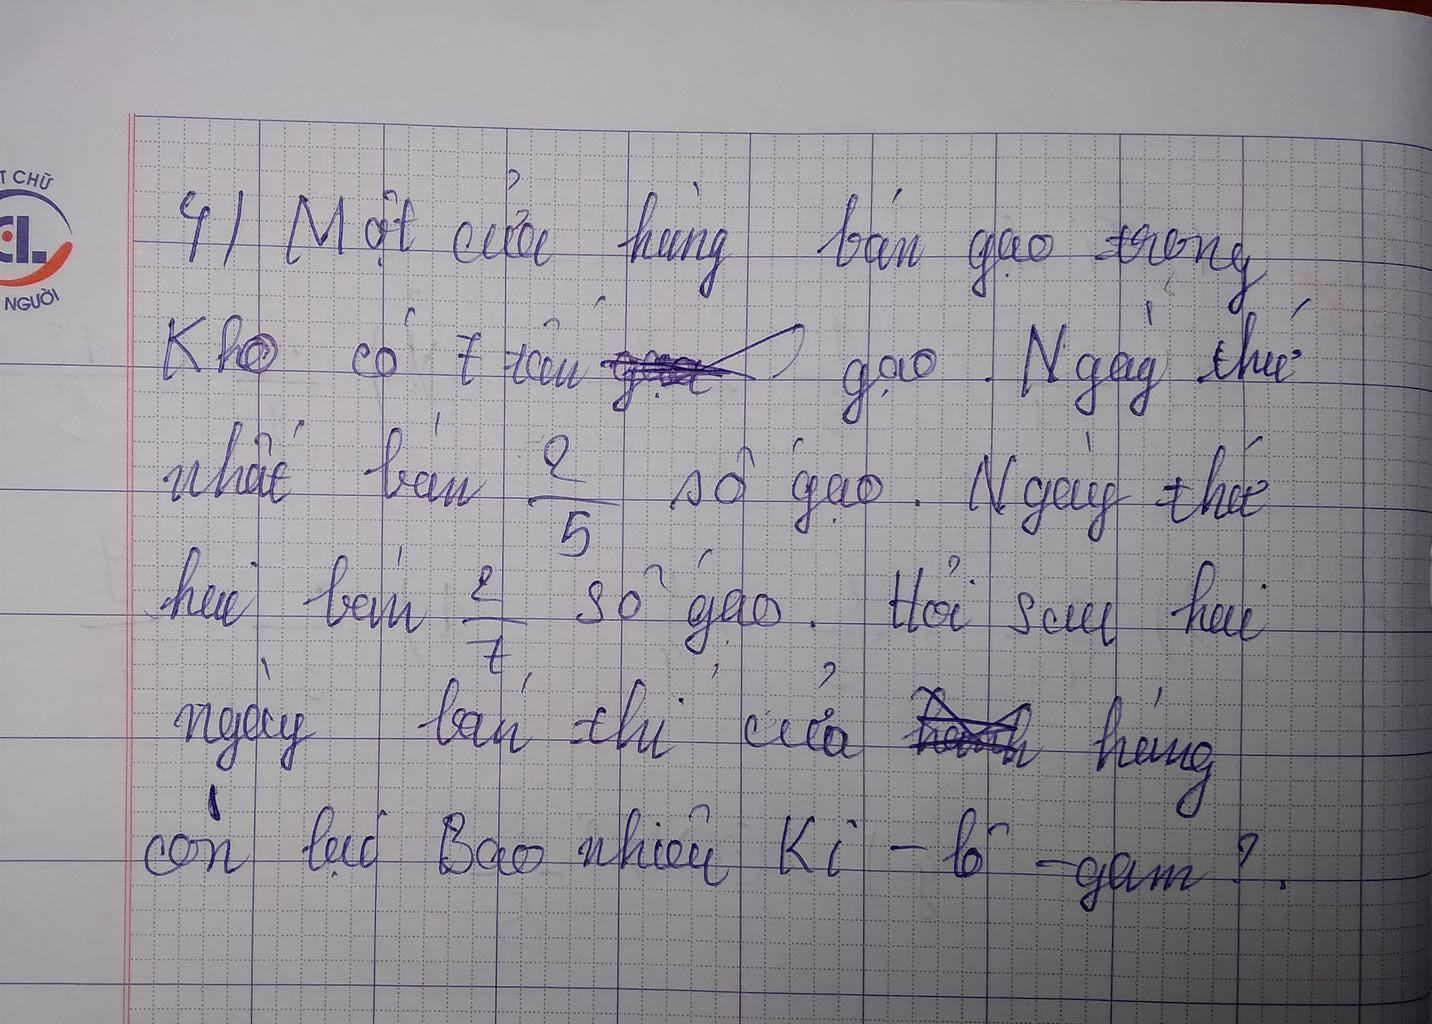 4) Một cửa hàng bán gạo trong
Kho có 7 tấn gạo. Ngày thứ
nhất bán 2/5 số gạo. Ngày thứ
hai bán 2/7 số gạo. Hỏi sau hai
ngày bán thì cửa hàng
còn lại Bao nhiêu Ki-lô-gam?.
T CHỮ
EL
NGƯỜI